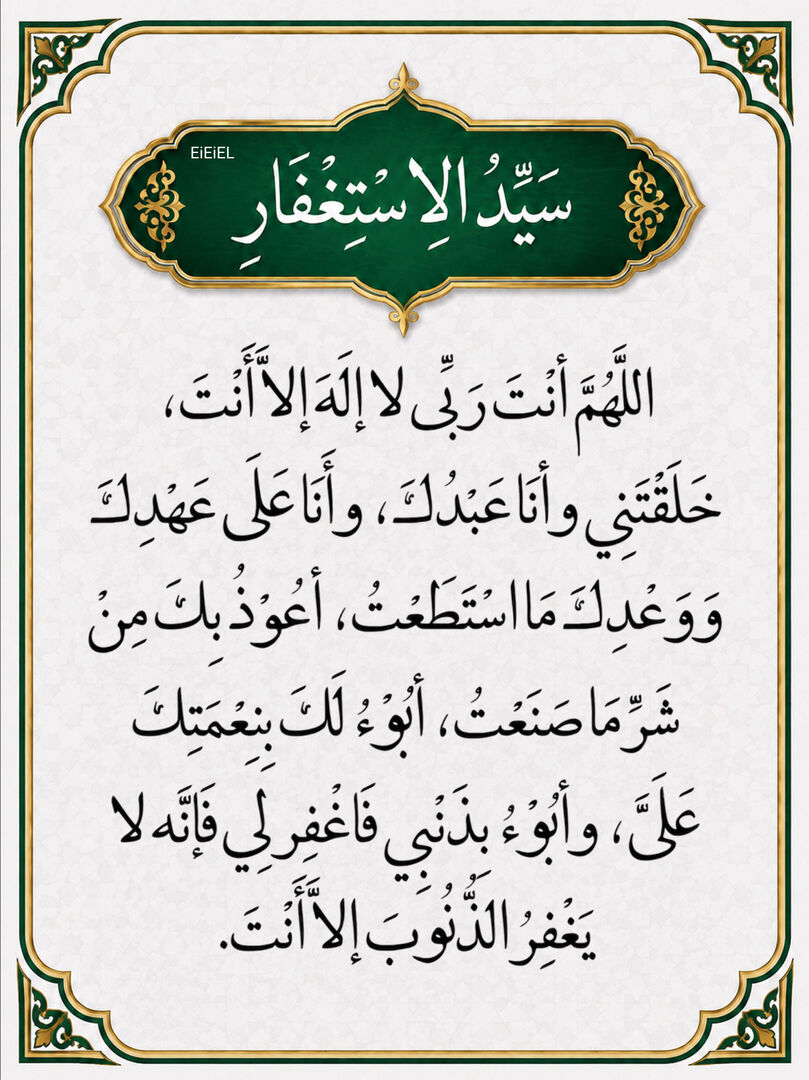 EiEiEL
سَيِّدُ الِاسْتِغْفَارِ
اللَّهُمَّ أنْتَ رَبِّى لا إلَهَ إلاَّ أَنْتَ،
خَلَقْتَنِي وأنَا عَبْدُكَ، وأَنَا عَلَى عَهْدِكَ
وَوَعْدِكَ مَا اسْتَطَعْتُ، أعُوْذُ بِكَ مِنْ
شَرِّ مَا صَنَعْتُ، أبُوْءُ لَكَ بِنِعْمَتِكَ
عَلَىَّ، وأبُوْءُ بِذَنْبِي فَاغْفِر لِي فَإنَّه لا
يَغْفِرُ الذُّنُوبَ إلاَّ أَنْتَ.